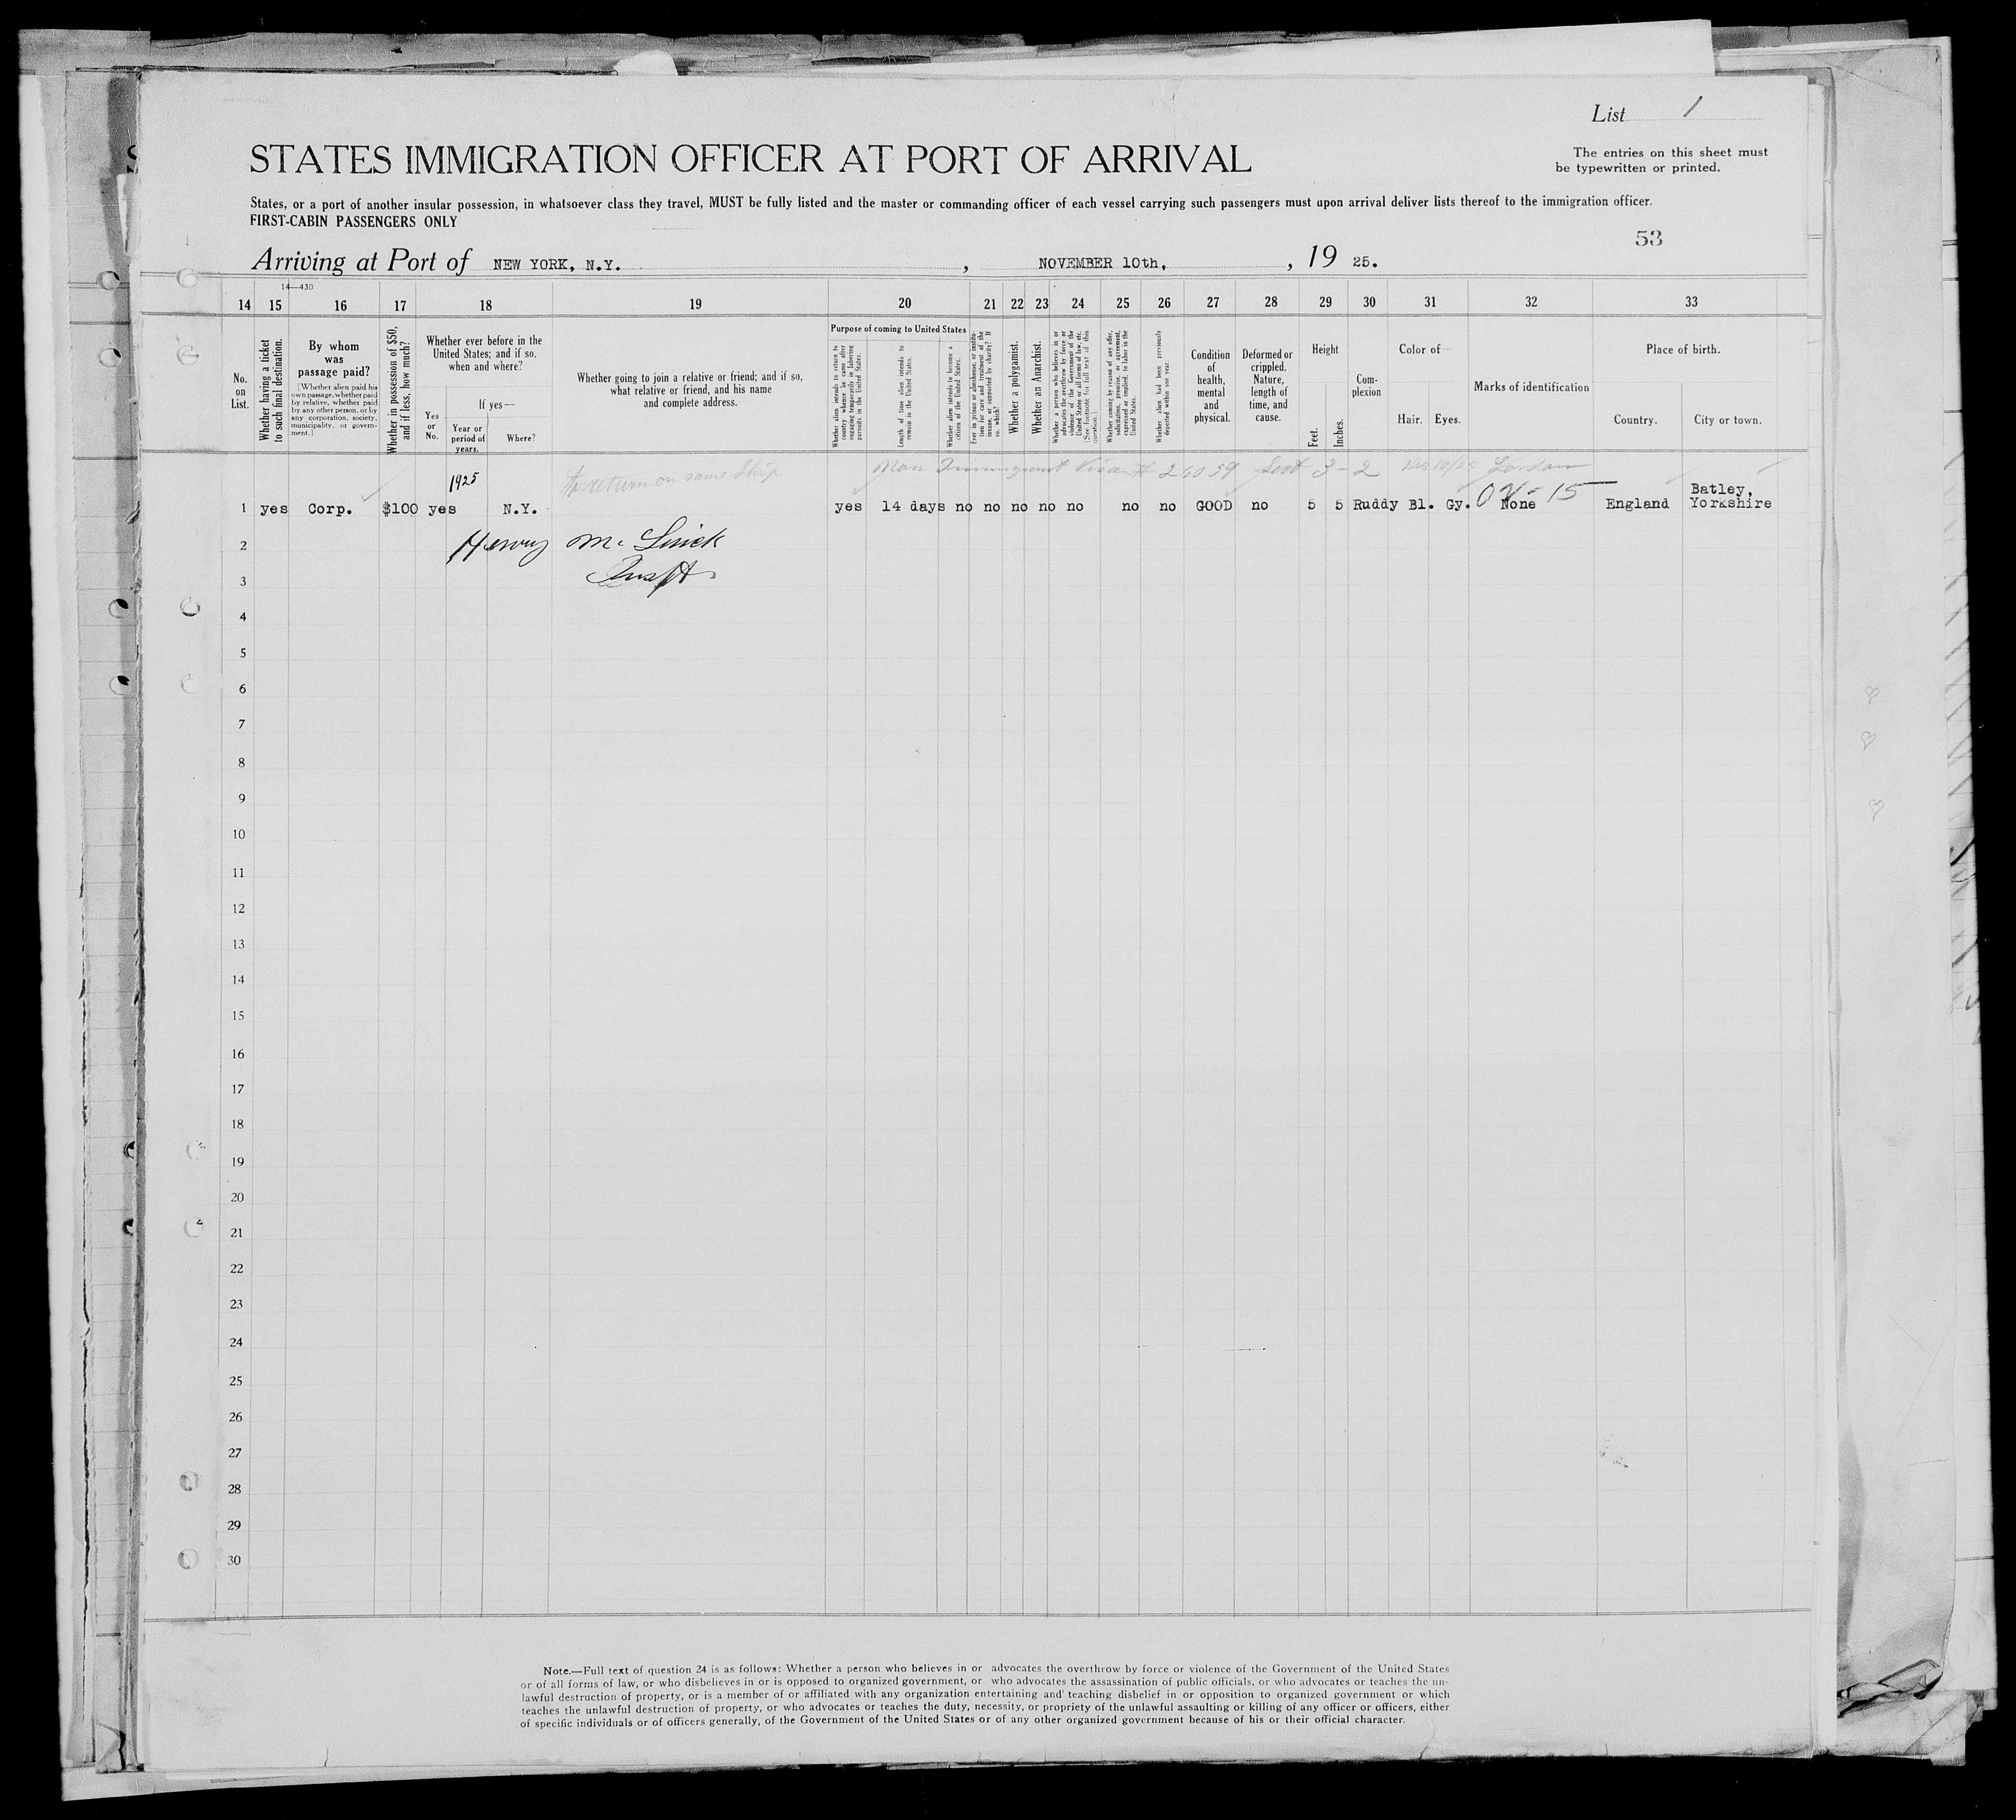 List 1
STATES IMMIGRATION OFFICER AT PORT OF ARRIVAL
The entries on this sheet must
be typewritten or printed.
States, or a port of another insular possession, in whatsoever class they travel, MUST be fully listed and the master or commanding officer of each vessel carrying such passengers must upon arrival deliver lists thereof to the immigration officer.
FIRST-CABIN PASSENGERS ONLY
53
Arriving at Port of NEW YORK, N.Y. , NOVEMBER 10th, , 19 25.
14—430
14 15 16 17 18 19 20 21 22 23 24 25 26 27 28 29 30 31 32 33
No. on List.
Whether having a ticket to such final destination.
By whom was passage paid?
[Whether alien paid his own passage, whether paid by relative, whether paid by any other person, or by any corporation, society, municipality, or government.]
Whether in possession of $50, and if less, how much?
Whether ever before in the United States; and if so, when and where?
Yes or No.
If yes—
Year or period of years.
Where?
Whether going to join a relative or friend; and if so, what relative or friend, and his name and complete address.
Purpose of coming to United States
Whether alien intends to return to country whence he came after engaging temporarily in laboring pursuits in the United States.
Length of time alien intends to remain in the United States.
Whether alien intends to become a citizen of the United States.
Ever in prison or almshouse, or institution for care and treatment of the insane, or supported by charity? If so, which?
Whether a polygamist.
Whether an Anarchist.
Whether a person who believes in or advocates the overthrow by force or violence of the Government of the United States or all forms of law, etc. (See footnote for full text of this question.)
Whether coming by reason of any offer, solicitation, promise, or agreement, expressed or implied, to labor in the United States.
Whether alien had been previously deported within one year.
Condition of health, mental and physical.
Deformed or crippled. Nature, length of time, and cause.
Height
Feet.
Inches.
Complexion
Color of—
Hair. Eyes.
Marks of identification
Place of birth.
Country. City or town.
1925 to return on same ship Non Immigrant Visa # 26039 Sect 3-2 London
1 yes Corp. $100 yes N.Y. yes 14 days no no no no no no no GOOD no 5 5 Ruddy Bl. Gy. None England Batley, Yorkshire
2 Henry
3
4
5
6
7
8
9
10
11
12
13
14
15
16
17
18
19
20
21
22
23
24
25
26
27
28
29
30
Note.—Full text of question 24 is as follows: Whether a person who believes in or advocates the overthrow by force or violence of the Government of the United States
or of all forms of law, or who disbelieves in or is opposed to organized government, or who advocates the assassination of public officials, or who advocates or teaches the un-
lawful destruction of property, or is a member of or affiliated with any organization entertaining and teaching disbelief in or opposition to organized government or which
teaches the unlawful destruction of property, or who advocates or teaches the duty, necessity, or propriety of the unlawful assaulting or killing of any officer or officers, either
of specific individuals or of officers generally, of the Government of the United States or of any other organized government because of his or their official character.